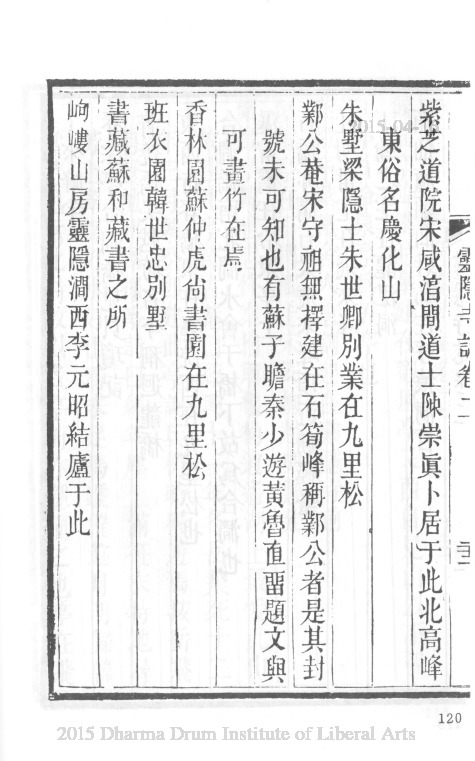 紫芝道院宋咸湻間道士陳崇眞卜居于此北高峰
東俗名慶化山
朱墅梁隱士朱世卿別業在九里松
鄴公菴宋守祖無擇建在石筍峰稱鄴公者是其封
號未可知也有蘇子瞻秦少遊黃魯直畱題文與
可畫竹在焉
香林園蘇仲虎尙書園在九里松
班衣園韓世忠別墅
書藏蘇和藏書之所
岣嶁山房靈隱澗西李元昭結廬于此
靈隱寺誌卷二
120
2015 Dharma Drum Institute of Liberal Arts